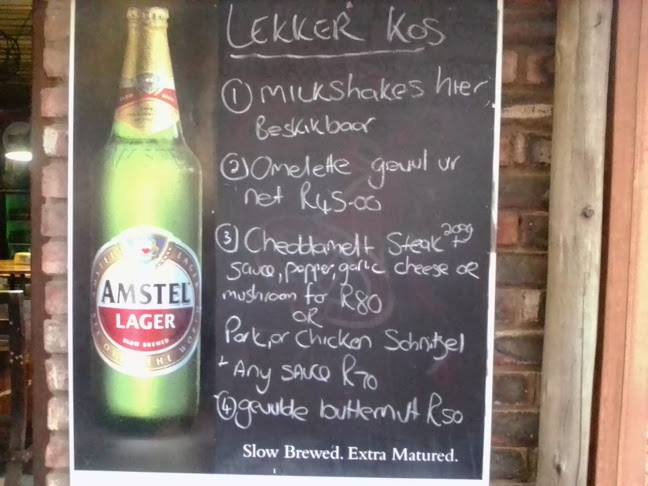 LEKKER KOS
① MILKSHAKES HIER
Beskikbaar
② Omelette gevul vr
net R45-00
③ Cheddamelt Steak 200g
Sauce, pepper, garlic cheese OR
mushroom for R80
OR
Pork, or Chicken Schnitzel
+ Any sauce R70
④ gevulde butternut R50
Slow Brewed. Extra Matured.
AMSTEL
LAGER
SLOW BREWED